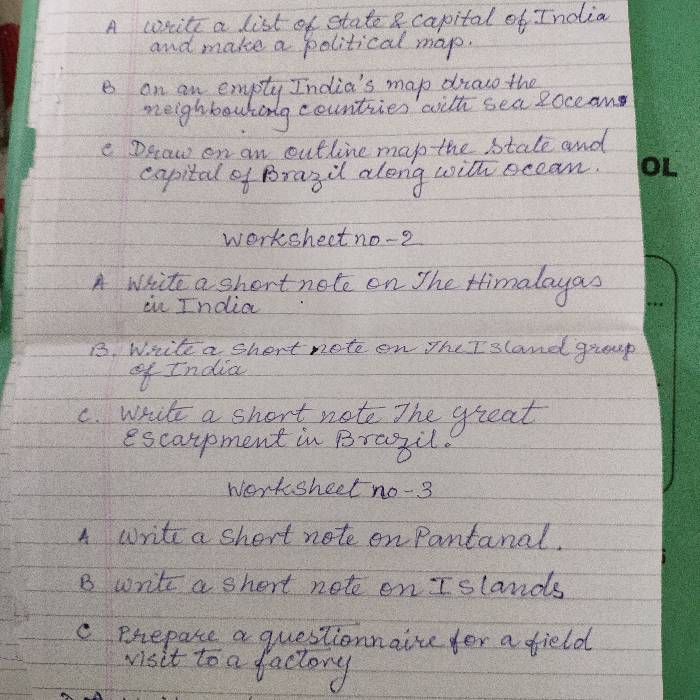 A write a list of state & capital of India
and make a political map.
B on an empty India's map draw the
neighbouring countries with sea & oceans
c Draw on an outline map the state and
capital of Brazil along with ocean.
OL
Worksheet no-2
A Write a short note on The Himalayas
in India
B. Write a short note on The Island group
of India
C. Write a short note The great
Escarpment in Brazil.
Worksheet no-3
A write a short note on Pantanal.
B write a short note on Islands
C Prepare a questionnaire for a field
visit to a factory